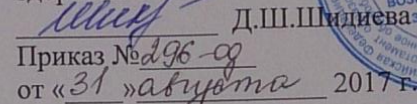 Д.Ш.Шидиева
Приказ №296-од
от «31» августа 2017 г.